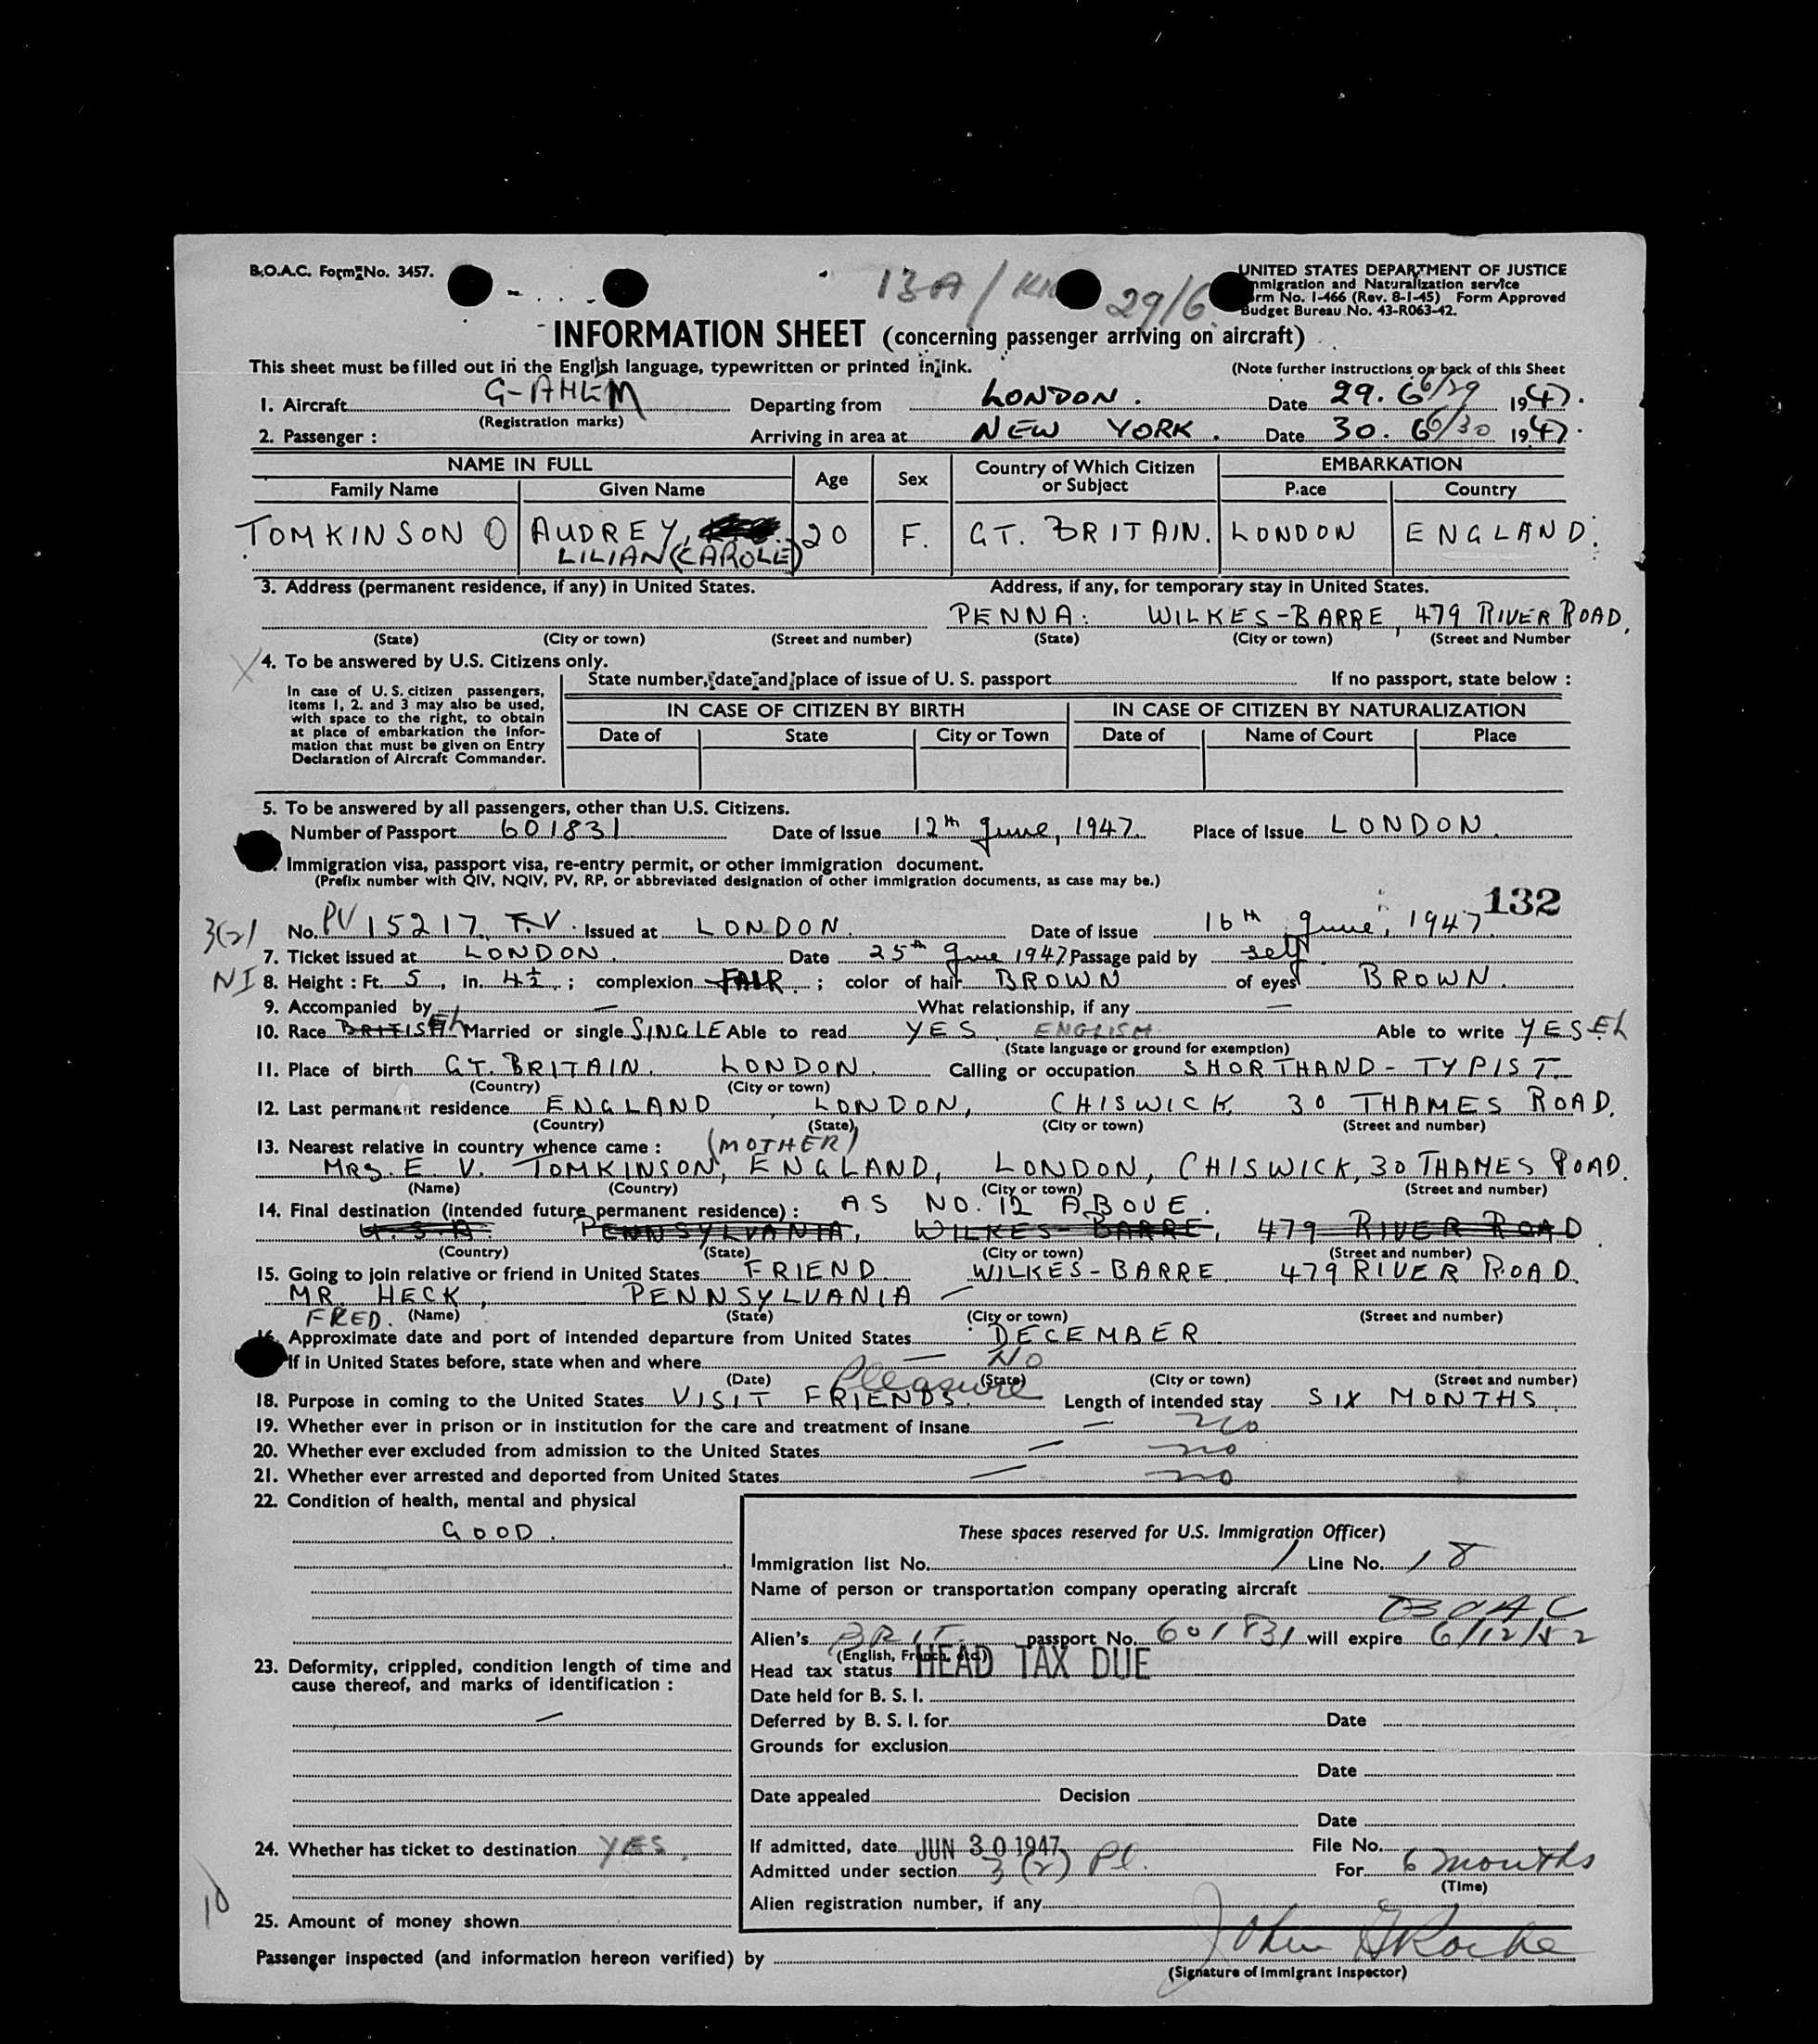 B.O.A.C. Form No. 3457.
13A / 29/6
UNITED STATES DEPARTMENT OF JUSTICE
mmigration and Naturalization service
rm No. I-466 (Rev. 8-1-45) Form Approved
Budget Bureau No. 43-R063-42.
INFORMATION SHEET (concerning passenger arriving on aircraft)
This sheet must be filled out in the English language, typewritten or printed in ink. (Note further instructions on back of this Sheet
1. Aircraft G-AHEM Departing from LONDON. Date 29. 6 6/29 1947.
(Registration marks)
2. Passenger : Arriving in area at NEW YORK. Date 30. 6 6/30 1947.
NAME IN FULL Age Sex Country of Which Citizen or Subject EMBARKATION
Family Name Given Name Place Country
TOMKINSON AUDREY, 20 F. GT. BRITAIN. LONDON ENGLAND.
LILIAN (CAROLE)
3. Address (permanent residence, if any) in United States. Address, if any, for temporary stay in United States.
PENNA: WILKES-BARRE, 479 RIVER ROAD,
(State) (City or town) (Street and number) (State) (City or town) (Street and Number
X 4. To be answered by U.S. Citizens only.
State number, date and place of issue of U. S. passport If no passport, state below :
In case of U. S. citizen passengers,
items 1, 2. and 3 may also be used,
with space to the right, to obtain
at place of embarkation the Infor-
mation that must be given on Entry
Declaration of Aircraft Commander.
IN CASE OF CITIZEN BY BIRTH IN CASE OF CITIZEN BY NATURALIZATION
Date of State City or Town Date of Name of Court Place
5. To be answered by all passengers, other than U.S. Citizens.
Number of Passport 601831 Date of Issue 12th June, 1947. Place of Issue LONDON.
Immigration visa, passport visa, re-entry permit, or other immigration document.
(Prefix number with QIV, NQIV, PV, RP, or abbreviated designation of other immigration documents, as case may be.)
132
3(2) No. PV 15217. T.V. Issued at LONDON. Date of issue 16th June, 1947.
7. Ticket issued at LONDON. Date 25th June 1947 Passage paid by self.
NI 8. Height : Ft. 5, in. 4½. ; complexion FAIR. ; color of hair BROWN of eyes BROWN.
9. Accompanied by — What relationship, if any —
10. Race BRITISH Eh Married or single SINGLE Able to read YES, ENGLISH Able to write YES Eh
(State language or ground for exemption)
11. Place of birth GT. BRITAIN. LONDON. Calling or occupation SHORTHAND-TYPIST.
(Country) (City or town)
12. Last permanent residence ENGLAND, LONDON, CHISWICK, 30 THAMES ROAD.
(Country) (State) (City or town) (Street and number)
13. Nearest relative in country whence came : (MOTHER)
MRS. E. V. TOMKINSON, ENGLAND, LONDON, CHISWICK, 30 THAMES ROAD.
(Name) (Country) (City or town) (Street and number)
14. Final destination (intended future permanent residence) : AS NO. 12 ABOVE.
U.S.A. PENNSYLVANIA, WILKES-BARRE, 479 RIVER ROAD.
(Country) (State) (City or town) (Street and number)
15. Going to join relative or friend in United States FRIEND. WILKES-BARRE, 479 RIVER ROAD.
MR. HECK, PENNSYLVANIA —
FRED. (Name) (State) (City or town) (Street and number)
16. Approximate date and port of intended departure from United States DECEMBER
If in United States before, state when and where — No
(Date) (State) (City or town) (Street and number)
Pleasure
18. Purpose in coming to the United States VISIT FRIENDS. Length of intended stay SIX MONTHS.
19. Whether ever in prison or in institution for the care and treatment of insane — no
20. Whether ever excluded from admission to the United States — no
21. Whether ever arrested and deported from United States — no
22. Condition of health, mental and physical
GOOD.
23. Deformity, crippled, condition length of time and
cause thereof, and marks of identification :
—
24. Whether has ticket to destination YES.
10
25. Amount of money shown
These spaces reserved for U.S. Immigration Officer)
Immigration list No. 1 Line No. 18
Name of person or transportation company operating aircraft
BOAC
Alien's BRIT. passport No. 601831 will expire 6/12/52
(English, French, etc.)
Head tax status HEAD TAX DUE
Date held for B. S. I.
Deferred by B. S. I. for Date
Grounds for exclusion
Date
Date appealed Decision
Date
If admitted, date JUN 30 1947 File No.
Admitted under section 3 (2) Pl. For 6 months
(Time)
Alien registration number, if any
Passenger inspected (and information hereon verified) by John G Roche
(Signature of Immigrant Inspector)